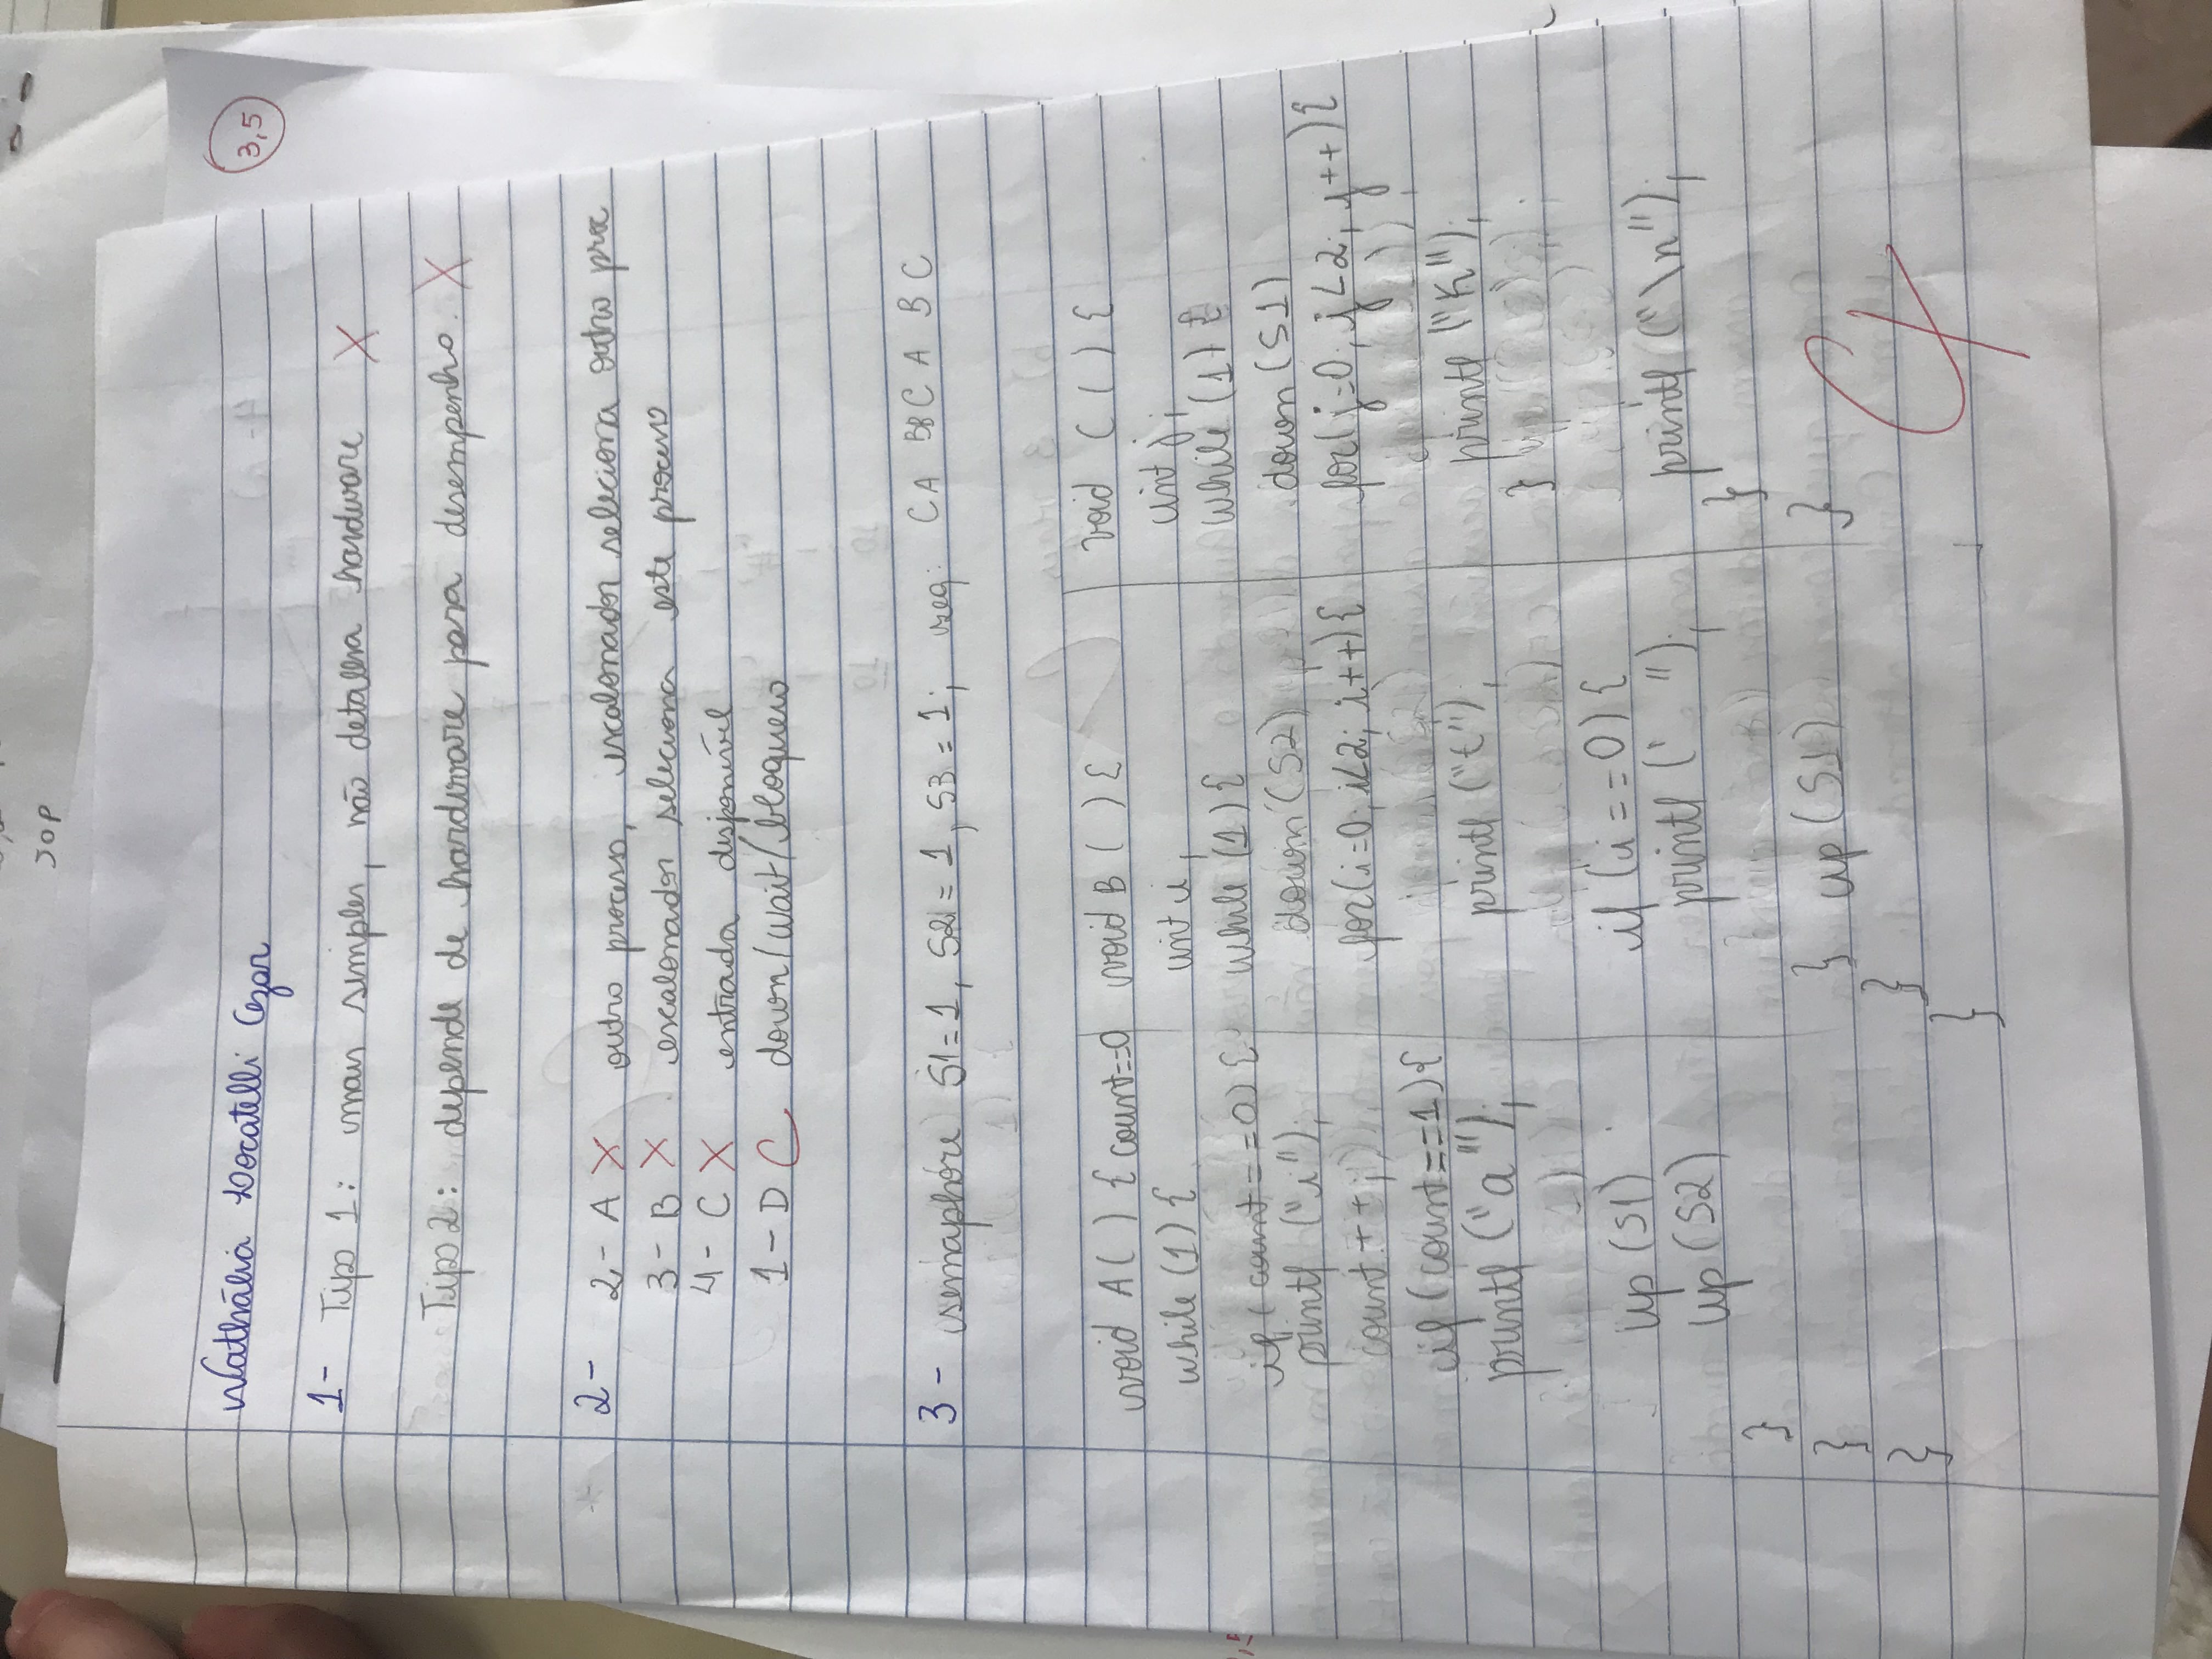 SOP
3,5
Nathália Locatelli Cezar
1- Tipo 1: mais simples, não detalha hardware X
Tipo 2: depende de hardware para desempenho. X
2- 2- A X outro processo, escalonador seleciona outro proc
3- B X escalonador seleciona este processo
4- C X entrada disponível
1- D C down/wait/bloqueio
3- semaphore S1=1, S2=1, S3=1; seq: CA BB C A B C
void A( ) { count==0
while (1) {
if (count==0) {
printf ("i");
count++;
if (count==1) {
printf ("a");
up (S1)
up (S2)
}
}
}
void B ( ) {
int i;
while (1) {
down (S2)
for(i=0; i<2; i++) {
printf ("t");
if (i==0) {
printf (" ");
} up (S1)
}
}
void C ( ) {
int j;
while (1) {
down (S1)
for(j=0; j<2; j++) {
printf ("K");
}
printf ("\n");
}
}